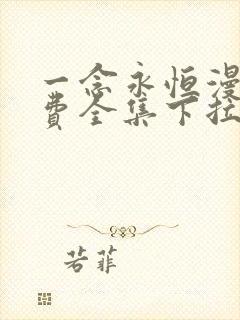 一念永恒漫
费全集下拉
若菲